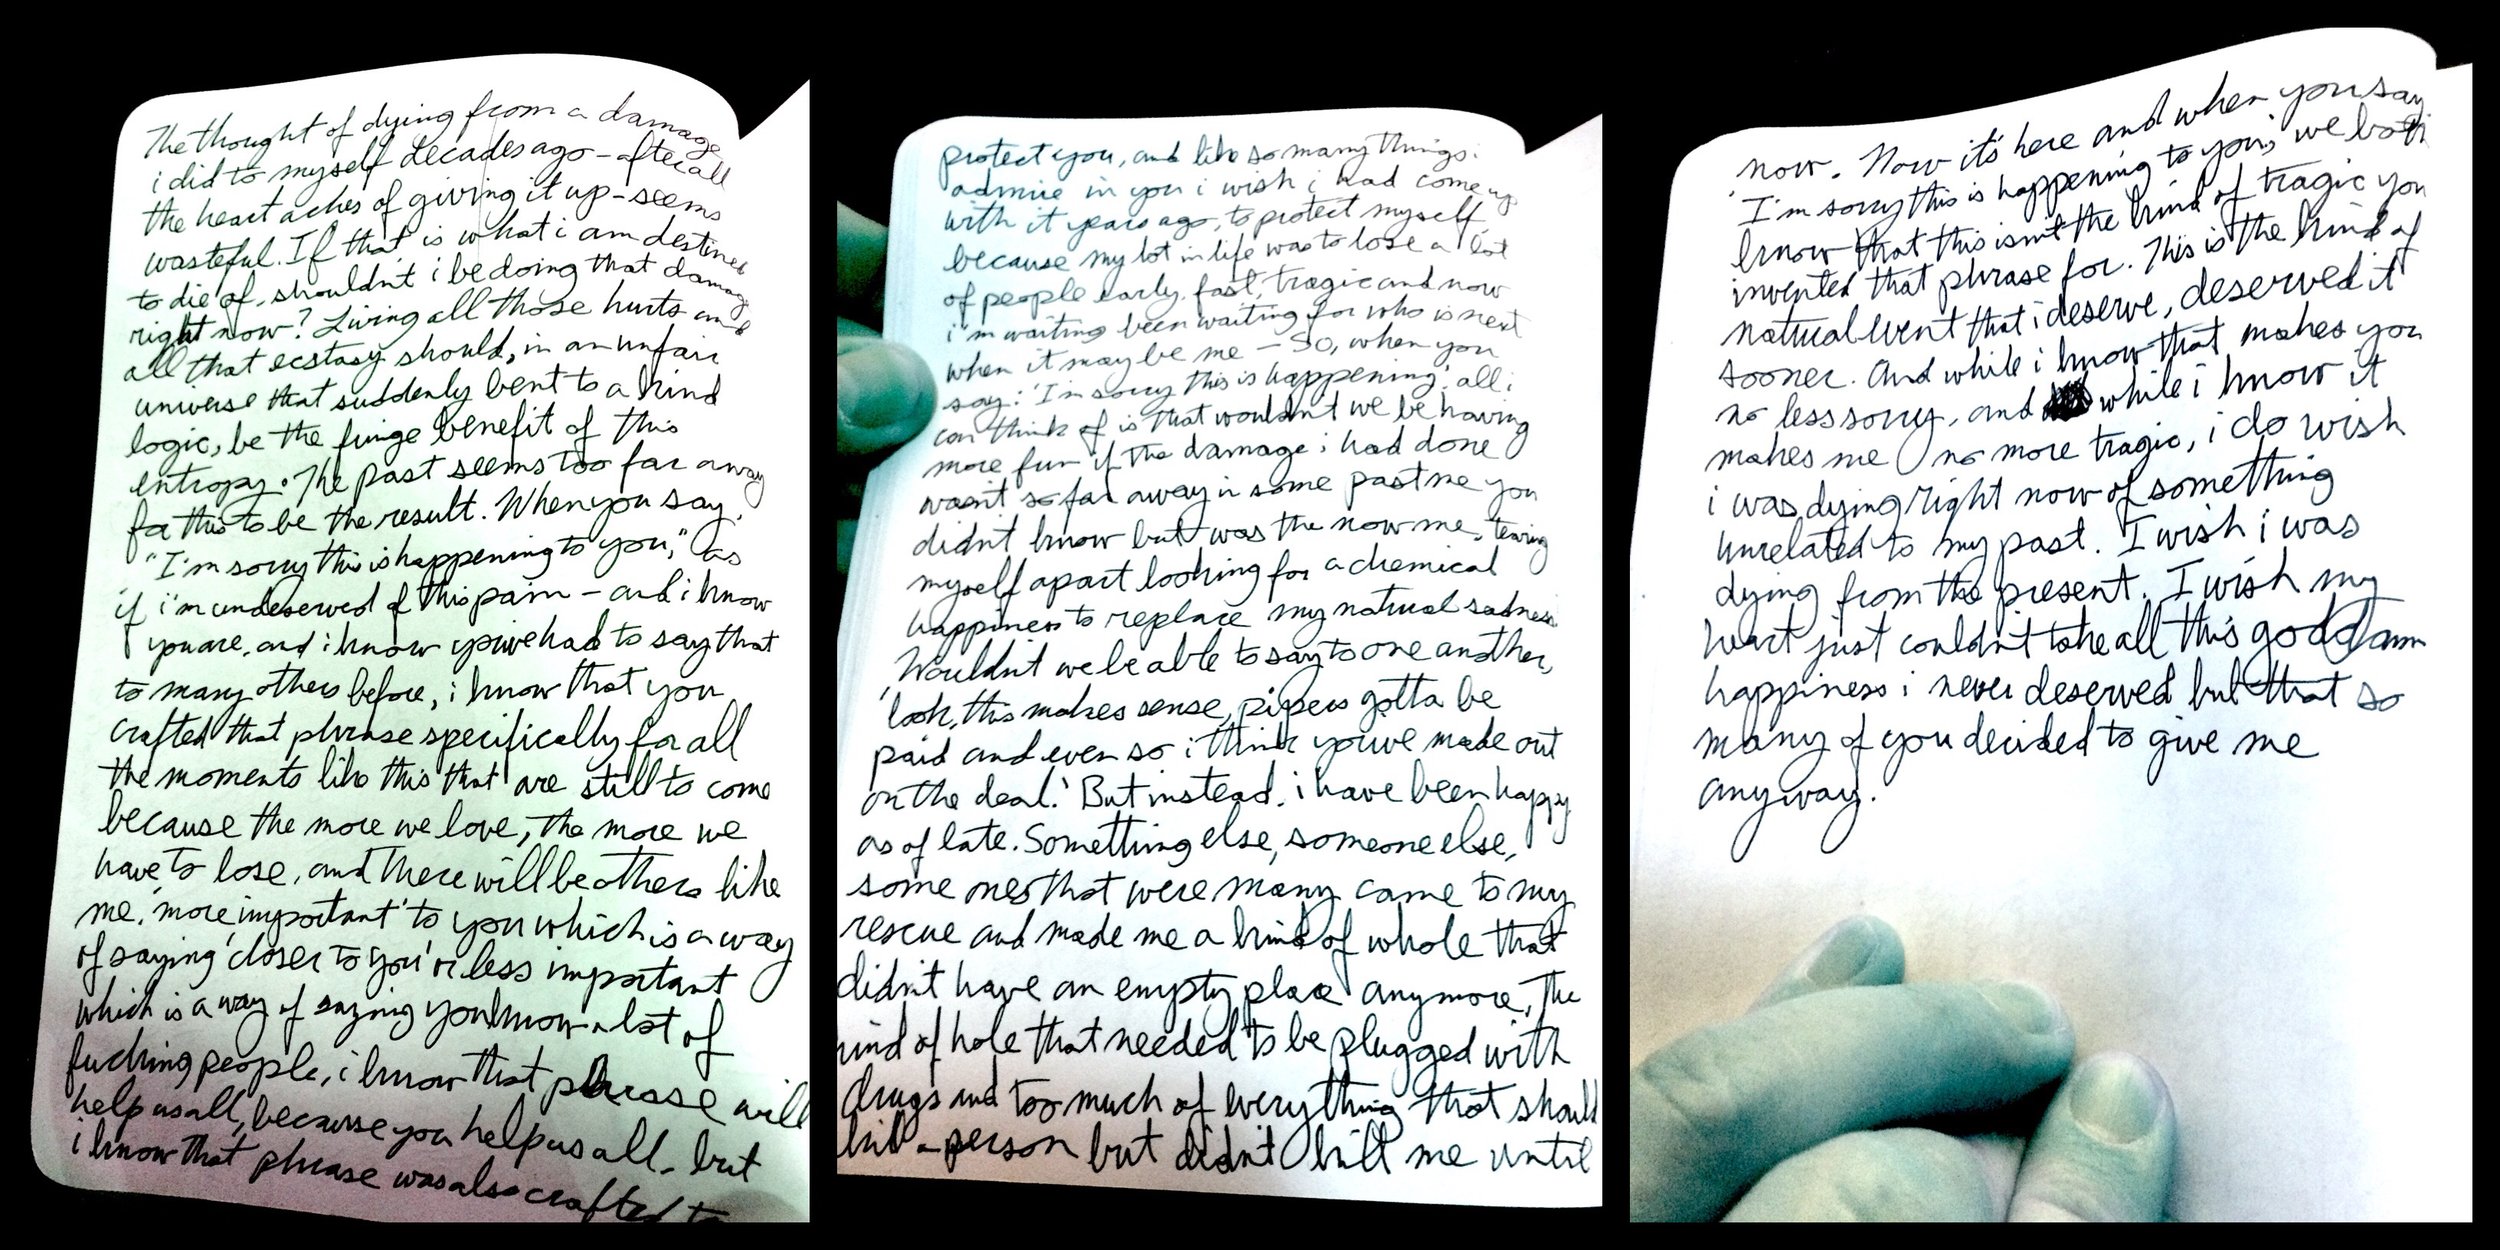 The thought of dying from a damage
i did to myself decades ago - after all
the heart aches of giving it up - seems
wasteful. If that is what i am destined
to die of, shouldn't i be doing that damage
right now? Living all those hurts and
all that ecstasy should, in an unfair
universe that suddenly bent to a kind
logic, be the fringe benefit of this
entropy. The past seems too far away
for this to be the result. When you say,
"I'm sorry this is happening to you," as
if i'm undeserved of this pain - and i know
you are, and i know you've had to say that
to many others before, i know that you
crafted that phrase specifically for all
the moments like this that are still to come
because the more we love, the more we
have to lose, and there will be others like
me, 'more important' to you which is a way
of saying 'closer to you' or less important
which is a way of saying you know a lot of
fucking people, i know that phrase will
help us all, because you help us all, but
i know that phrase was also crafted to
protect you, and like so many things i
admire in you i wish i had come up
with it years ago, to protect myself
because my lot in life was to lose a lot
of people early, fast, tragic and now
i'm waiting been waiting for who is next
when it may be me - So, when you
say: 'I'm sorry this is happening', all i
can think of is that wouldn't we be having
more fun if the damage i had done
wasn't so far away in some past me you
didn't know but was the now me, tearing
myself apart looking for a chemical
happiness to replace my natural sadness
Wouldn't we be able to say to one another,
'look, this makes sense, pipers gotta be
paid and even so i think you've made out
on the deal.' But instead, i have been happy
as of late. Something else, someone else,
some ones that were many came to my
rescue and made me a kind of whole that
didn't have an empty place anymore, the
kind of hole that needed to be plugged with
drugs and too much of everything that should
kill a person but didn't kill me until
now. Now it's here and when you say
'I'm sorry this is happening to you,' we both
know that this isn't the kind of tragic you
invented that phrase for. This is the kind of
natural event that i deserve, deserved it
sooner. And while i know that makes you
no less sorry, and while i know it
makes me no more tragic, i do wish
i was dying right now of something
unrelated to my past. I wish i was
dying from the present. I wish my
heart just couldn't take all this goddamn
happiness i never deserved but that so
many of you decided to give me
anyway.